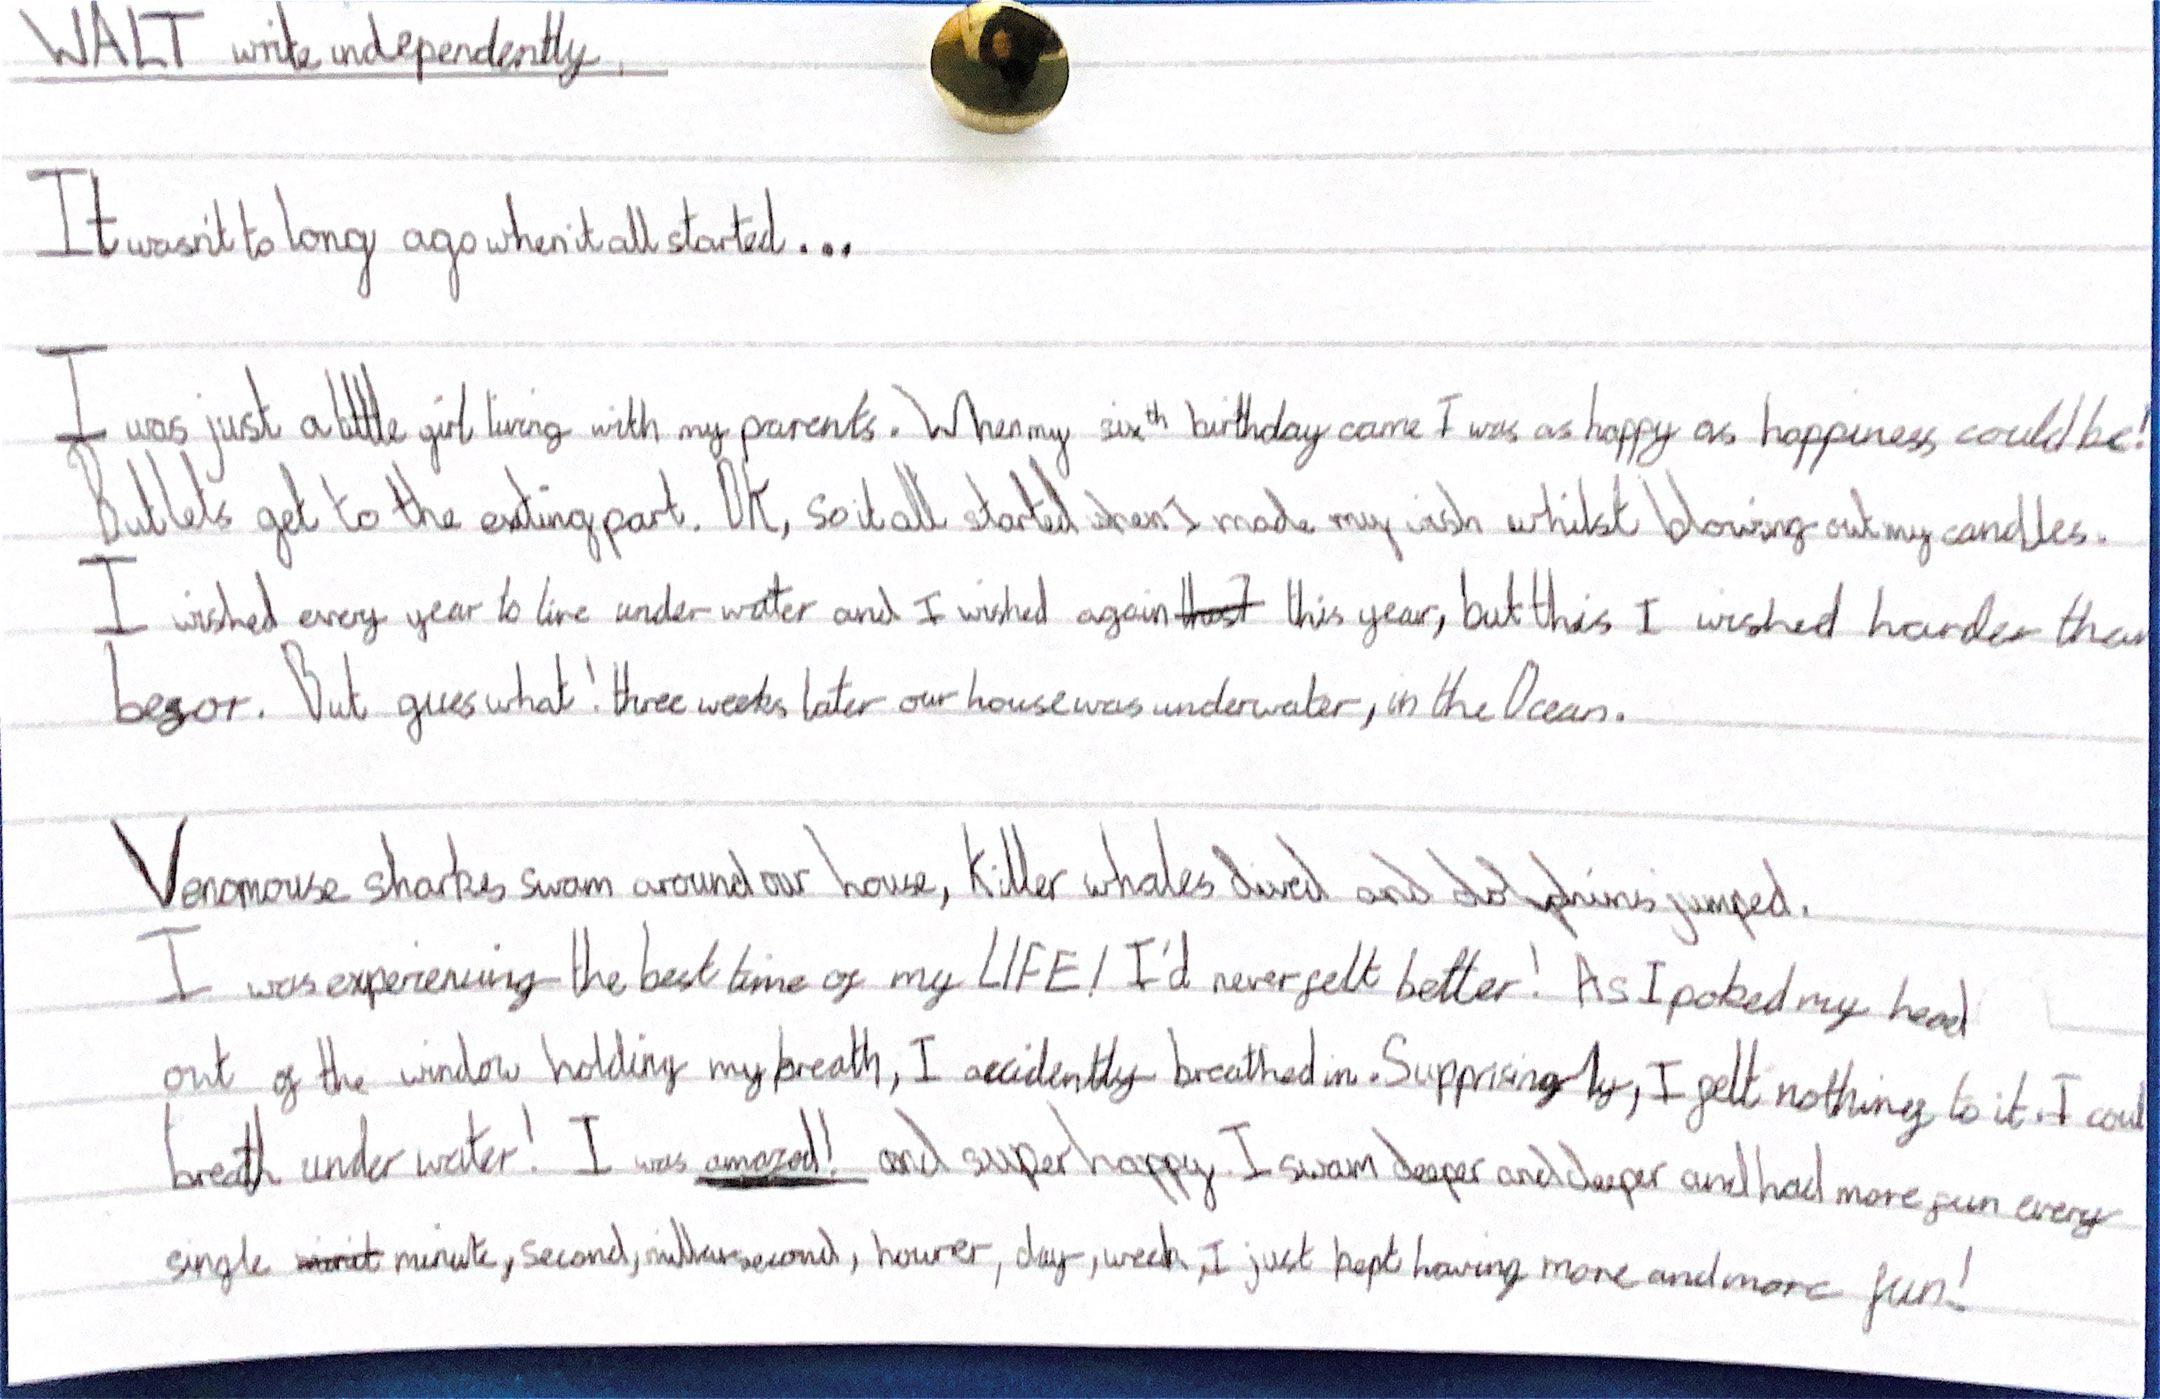 WALT write independently.
It wasn't to long ago when it all started...
I was just a little girl living with my parents. When my sixth birthday came I was as happy as happiness could be!
But lets get to the exiting part. OK, so it all started when I made my wish whilst blowing out my candles.
I wished every year to live under water and I wished again that this year, but this I wished harder than
befor. But gues what! three weeks later our house was underwater, in the Ocean.
Venomouse sharkes swam around our house, Killer whales dived and dolphins jumped.
I was experiencing the best time of my LIFE! I'd never felt better! As I poked my head
out of the window holding my breath, I accidently breathed in. Supprisingly, I felt nothing to it. I coul
breath under water! I was amazed! and super happy. I swam deeper and deeper and had more fun every
single minute, second, millarsecond, hourer, day, week, I just kept having more and more fun!